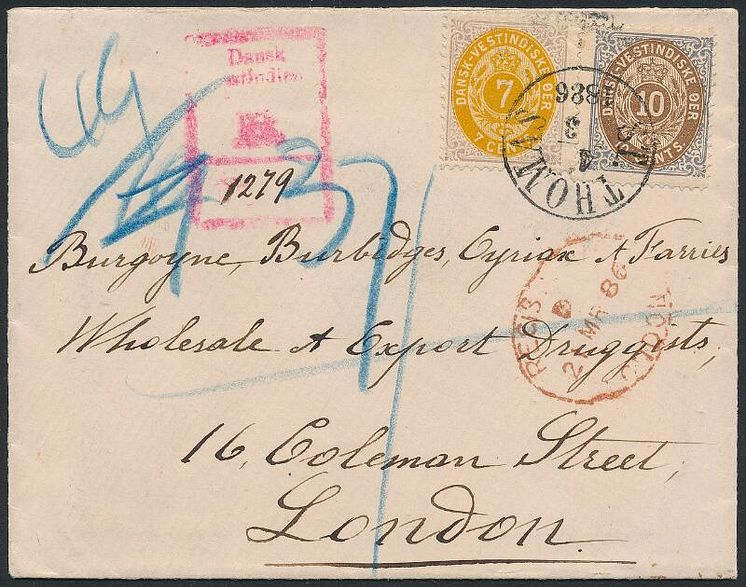 Dansk
1279
DANSK-VESTINDISKE ØER
7
7 CENTS
VESTINDISKE ØER
10
CENTS.
ST THOMAS
4
3
1886
Burgoyne, Burbidges, Cyriax & Farries
Wholesale & Export Druggists,
16, Coleman Street,
London.
REGIS
LONDON
MR 86
37